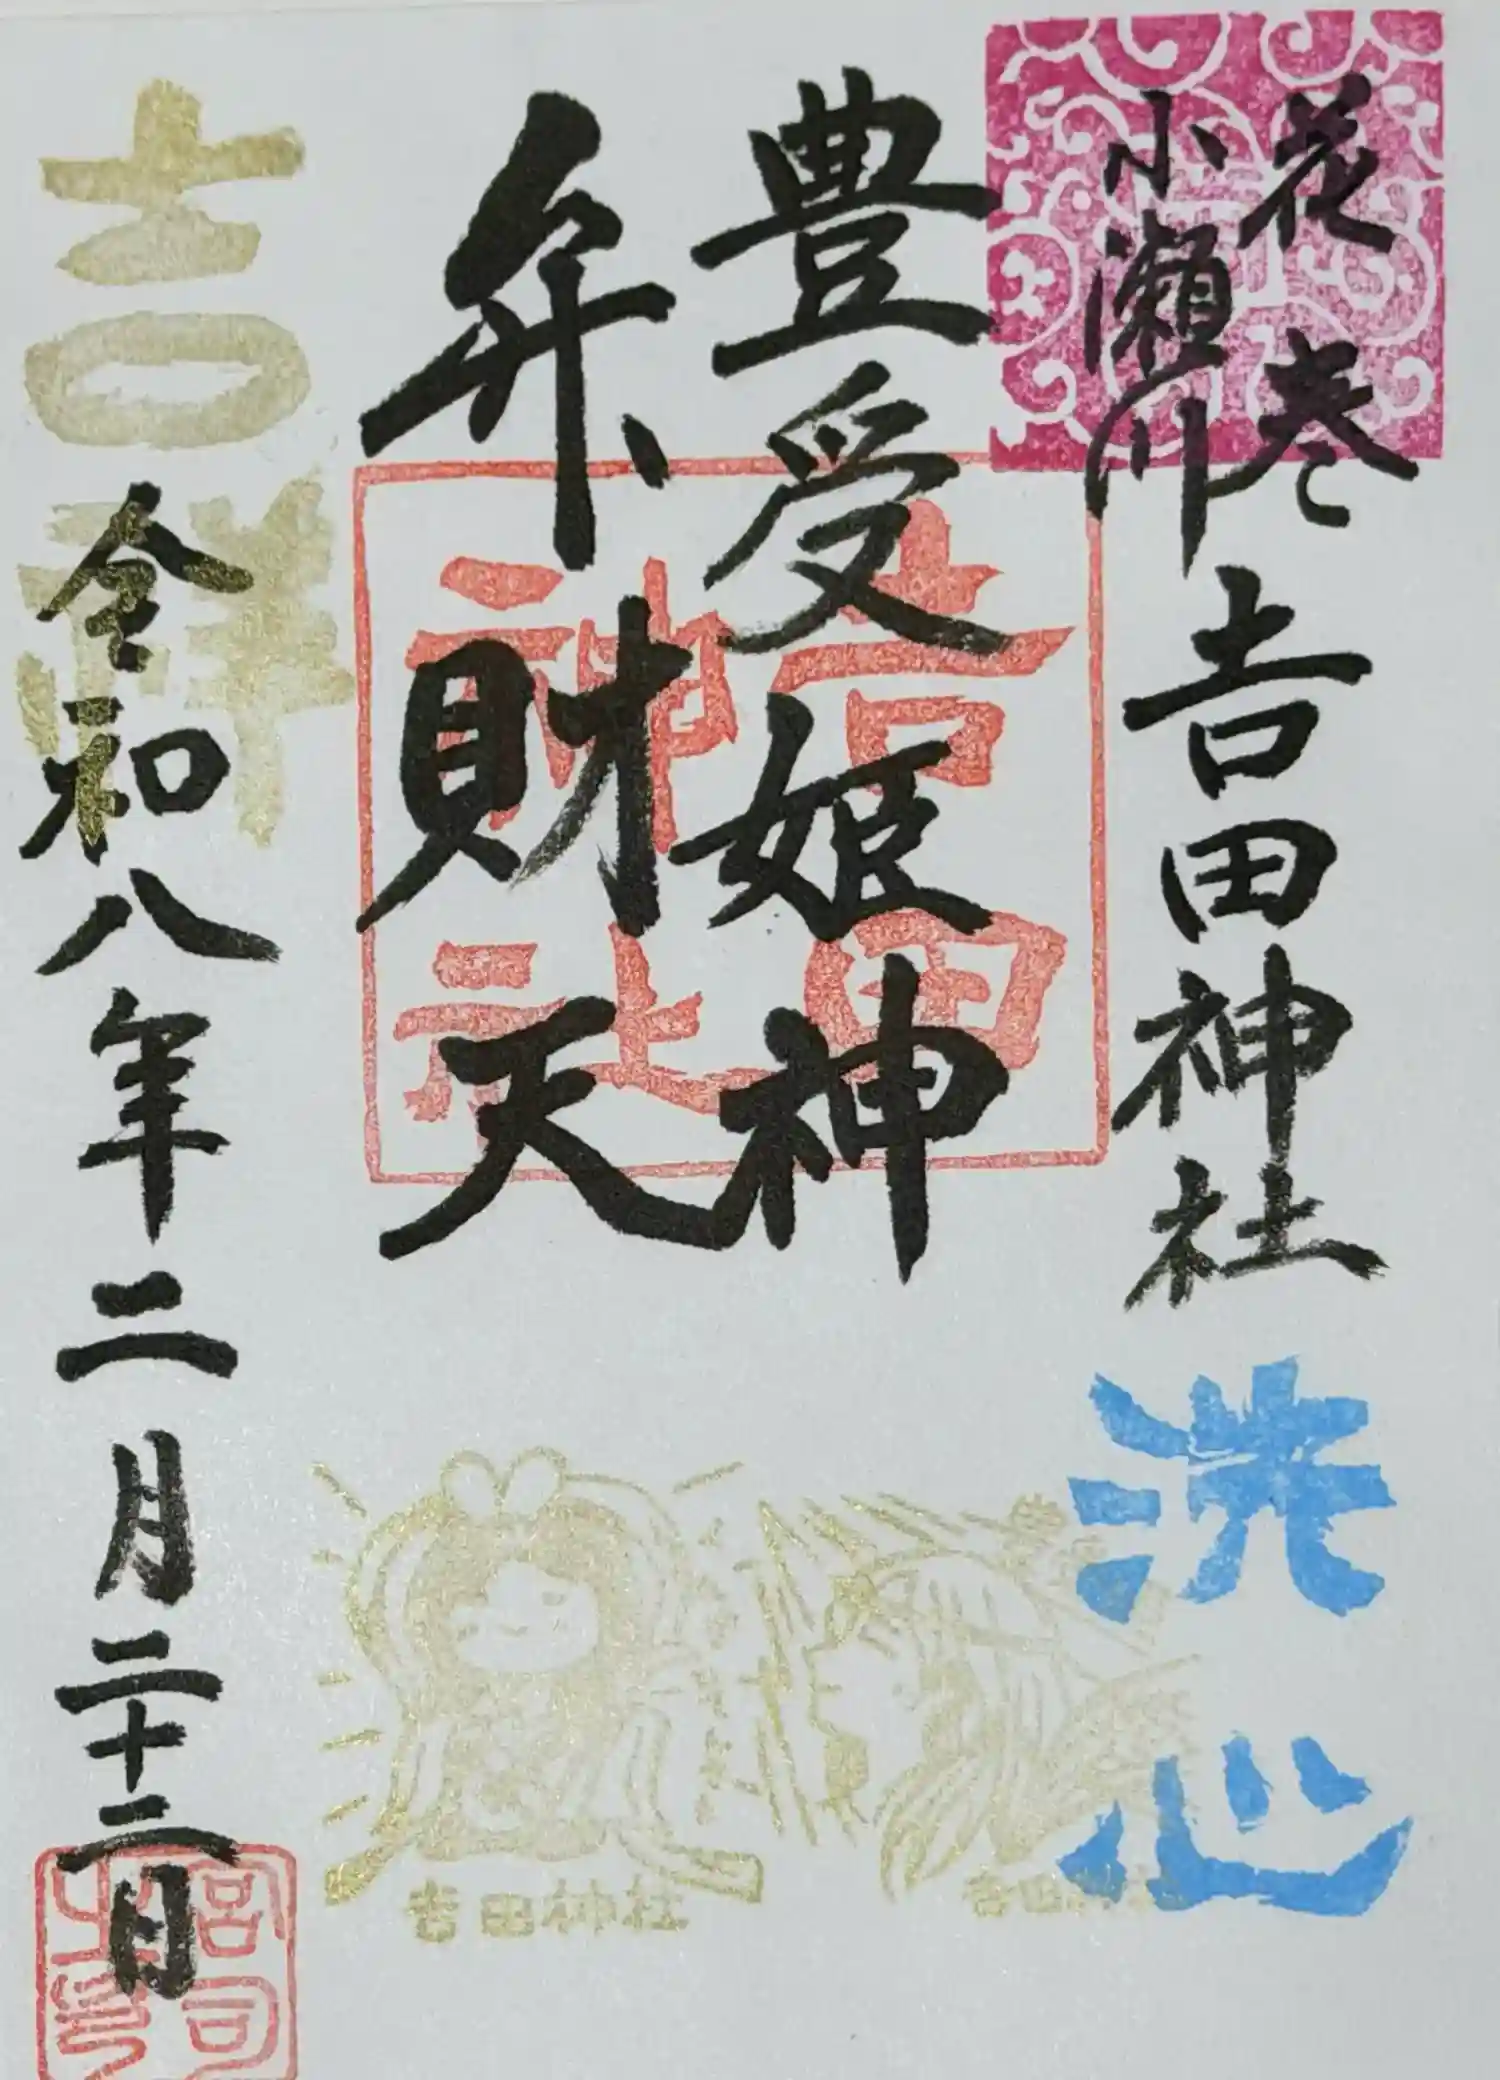 花巻
小瀬川
吉田神社
洗心
豊受姫神
弁財天
吉田
神社
吉祥
令和八年二月二十二日
宮司
之印
吉田神社
吉田神社